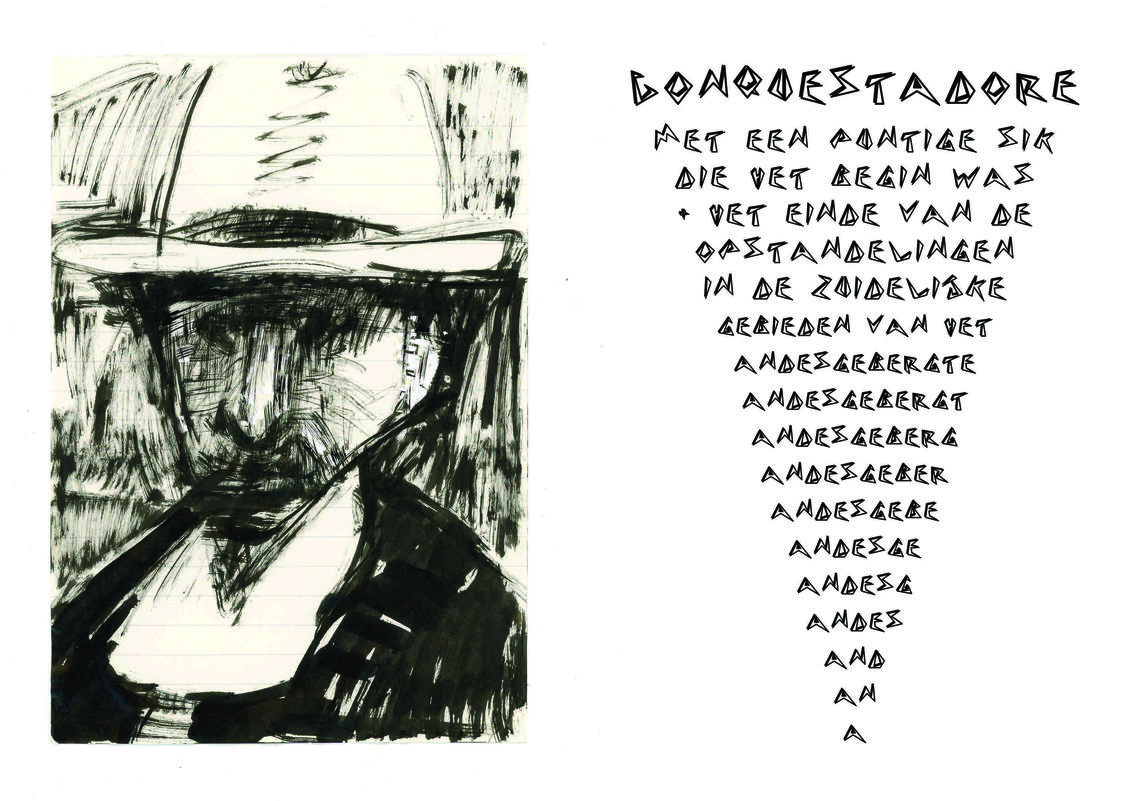 CONQUESTADORE
MET EEN PUNTIGE SIK
DIE HET BEGIN WAS
+ HET EINDE VAN DE
OPSTANDELINGEN
IN DE ZUIDELIJKE
GEBIEDEN VAN HET
ANDESGEBERGTE
ANDESGEBERGT
ANDESGEBERG
ANDESGEBER
ANDESGEBE
ANDESGE
ANDESG
ANDES
AND
AN
A